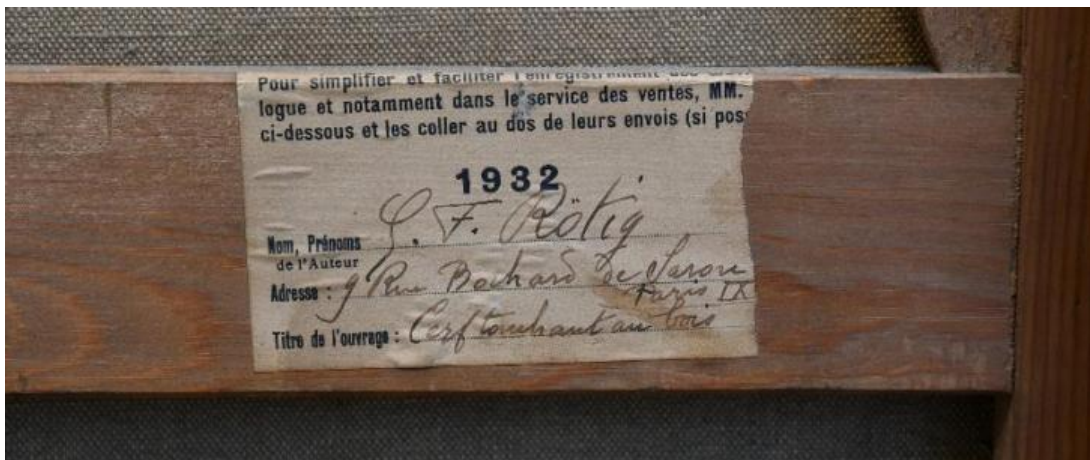 Pour simplifier et faciliter l'enregistrement des
logue et notamment dans le service des ventes, MM.
ci-dessous et les coller au dos de leurs envois (si pos
1932
Nom, Prénoms G. F. Rötig
de l'Auteur
Adresse : 9 Rue Bochard de Saron
Paris IX
Titre de l'ouvrage : Cerf touchant au bois